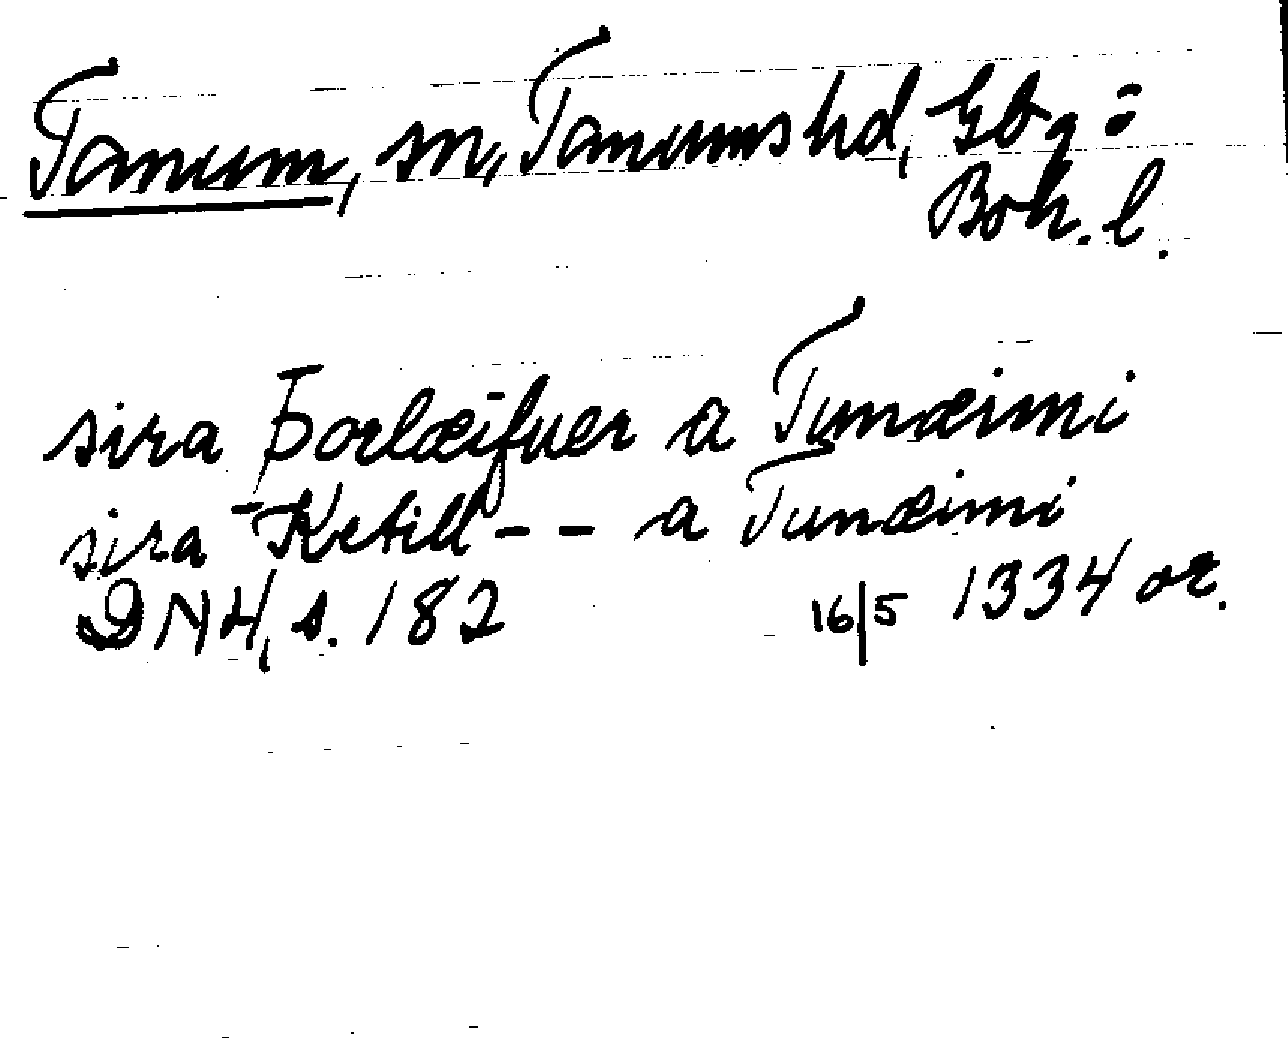 Tanum, sn, Tanums hd, Gbg o
Boh. l.
sira Þorlæifuer a Tunæimi
sira Ketill - - a Tunæimi
DN 4, s. 182 16/5 1334 or.